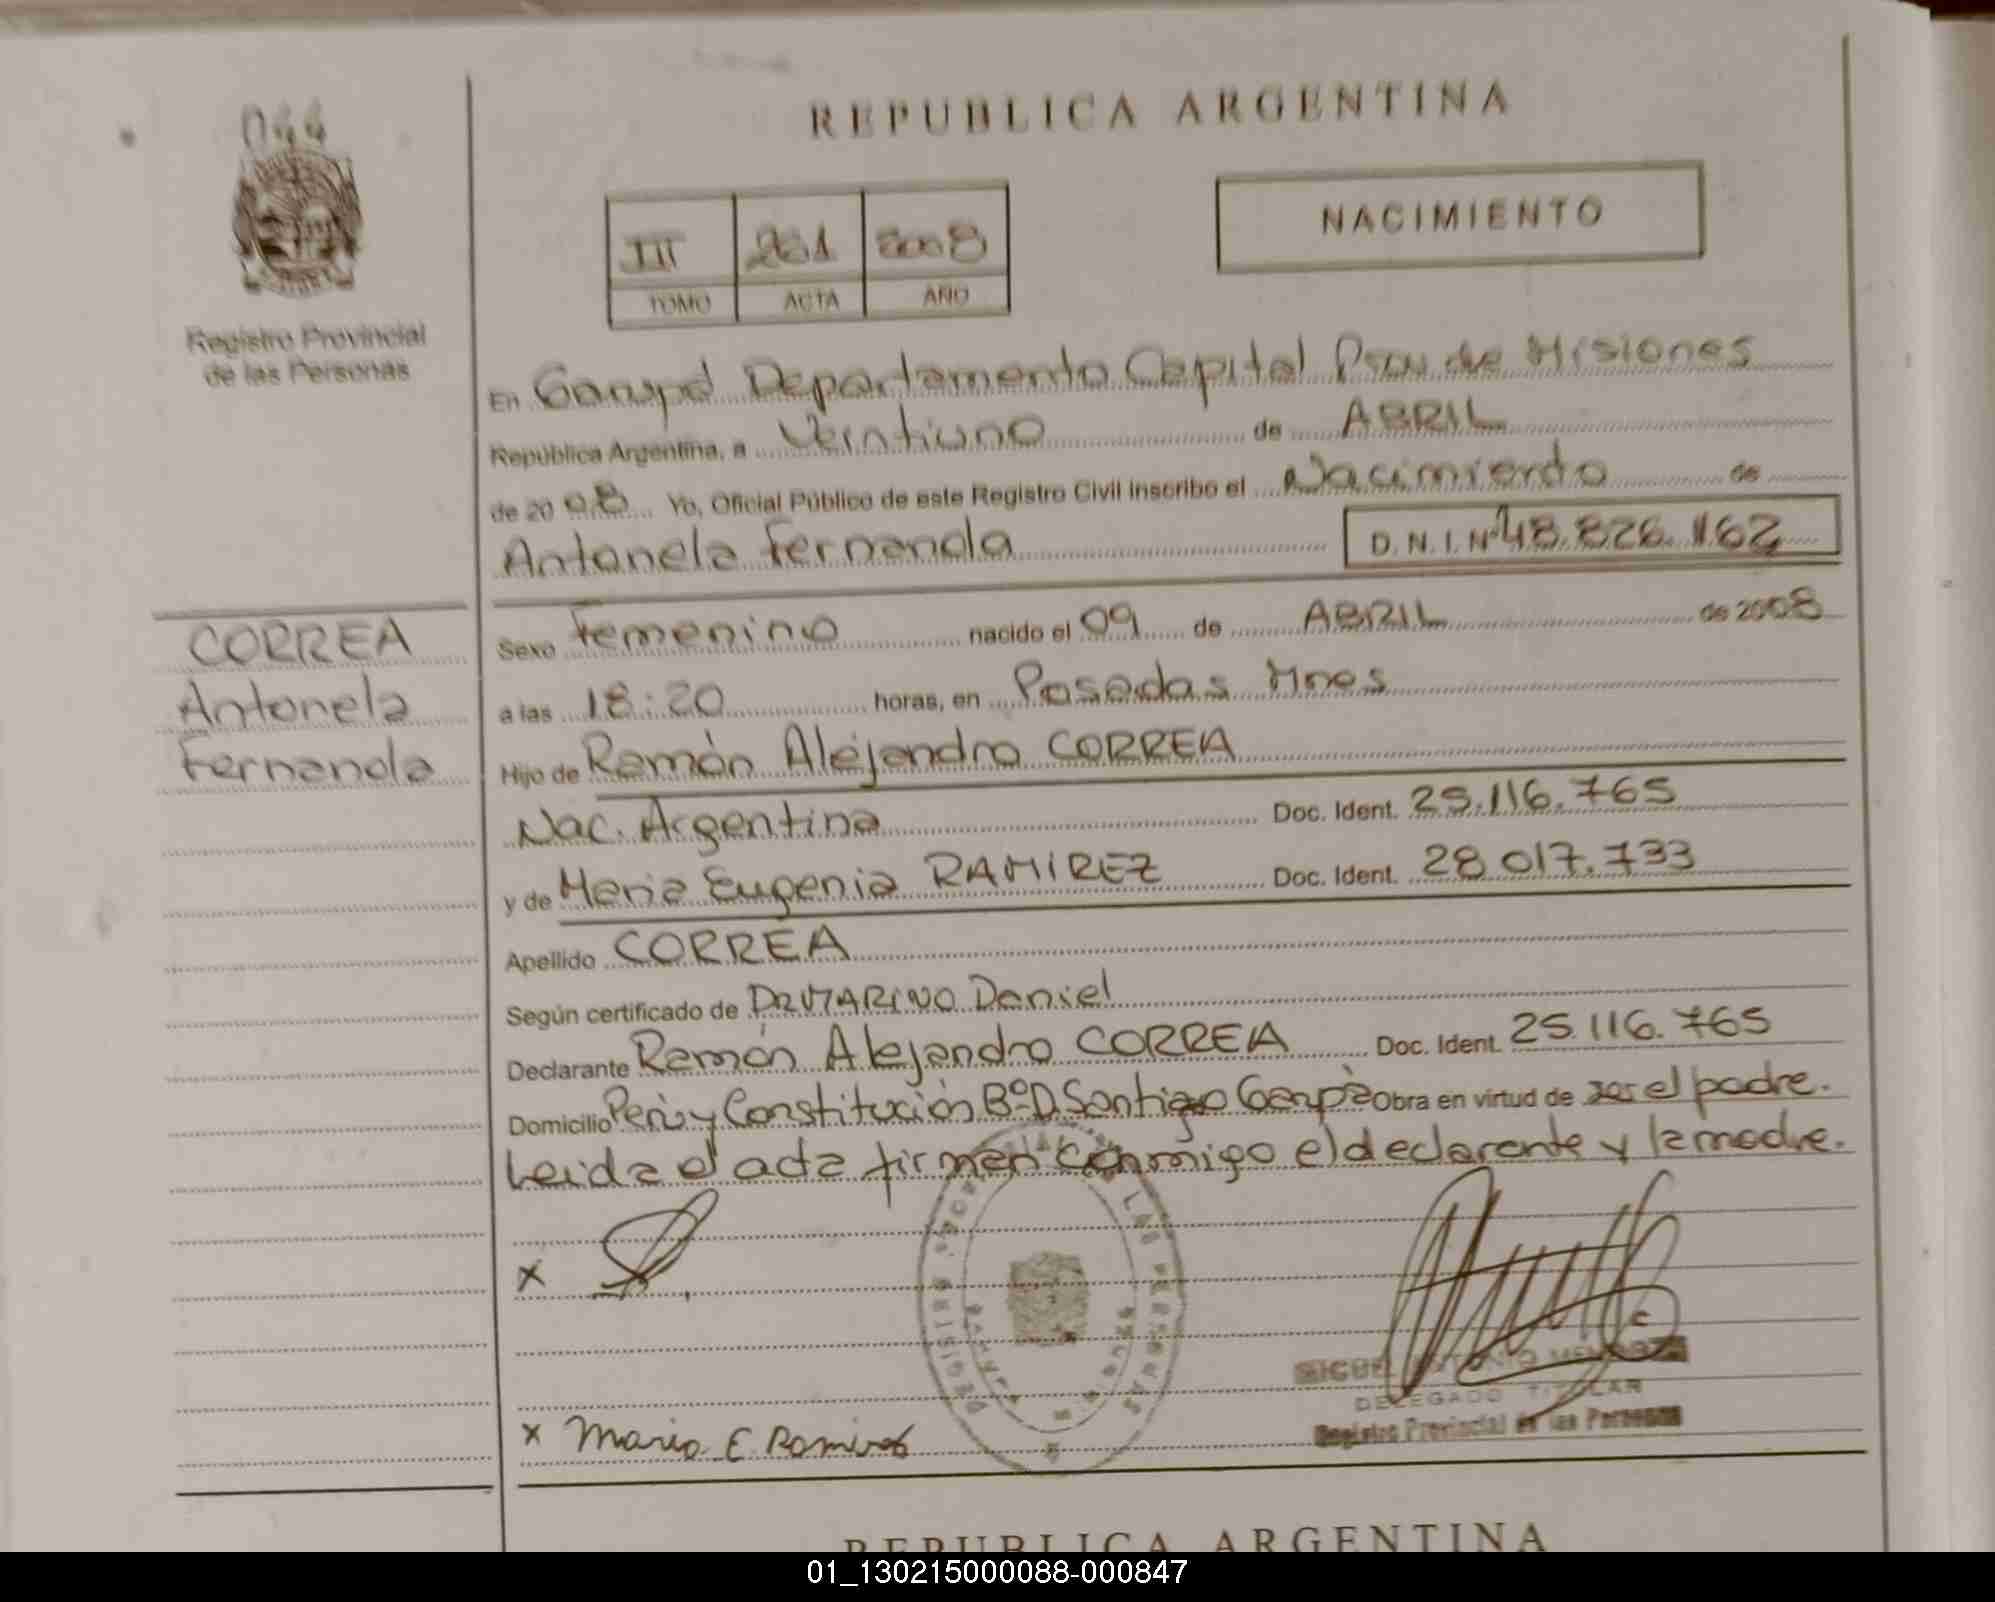 044
REPUBLICA ARGENTINA
NACIMIENTO
III 261 2008
TOMO ACTA AÑO
Registro Provincial
de las Personas
En Garupá Departamento Capital Pcia de Misiones
República Argentina, a Veintiuno de ABRIL
de 2008 Yo, Oficial Público de este Registro Civil inscribo el Nacimiento de
Antonela Fernanda D.N.I. Nº 48.826.162
CORREA
Antonela
Fernanda
Sexo Femenino nacido el 09 de ABRIL de 2008
a las 18:20 horas, en Posadas Mnes
Hijo de Ramón Alejandro CORREA
Nac. Argentina Doc. Ident. 25.116.765
y de Maria Eugenia RAMIREZ Doc. Ident. 28.017.733
Apellido CORREA
Según certificado de Daniel
Declarante Ramón Alejandro CORREA Doc. Ident. 25.116.765
Domicilio Perú y Constitución BºD Santiago Garupá Obra en virtud de ser el padre.
Leida el acta firman conmigo el declarante y la madre.
x
DELEGADO TITULAR
Registro Provincial de las Personas
x Maria E Ramirez
REPUBLICA ARGENTINA
01_130215000088-000847